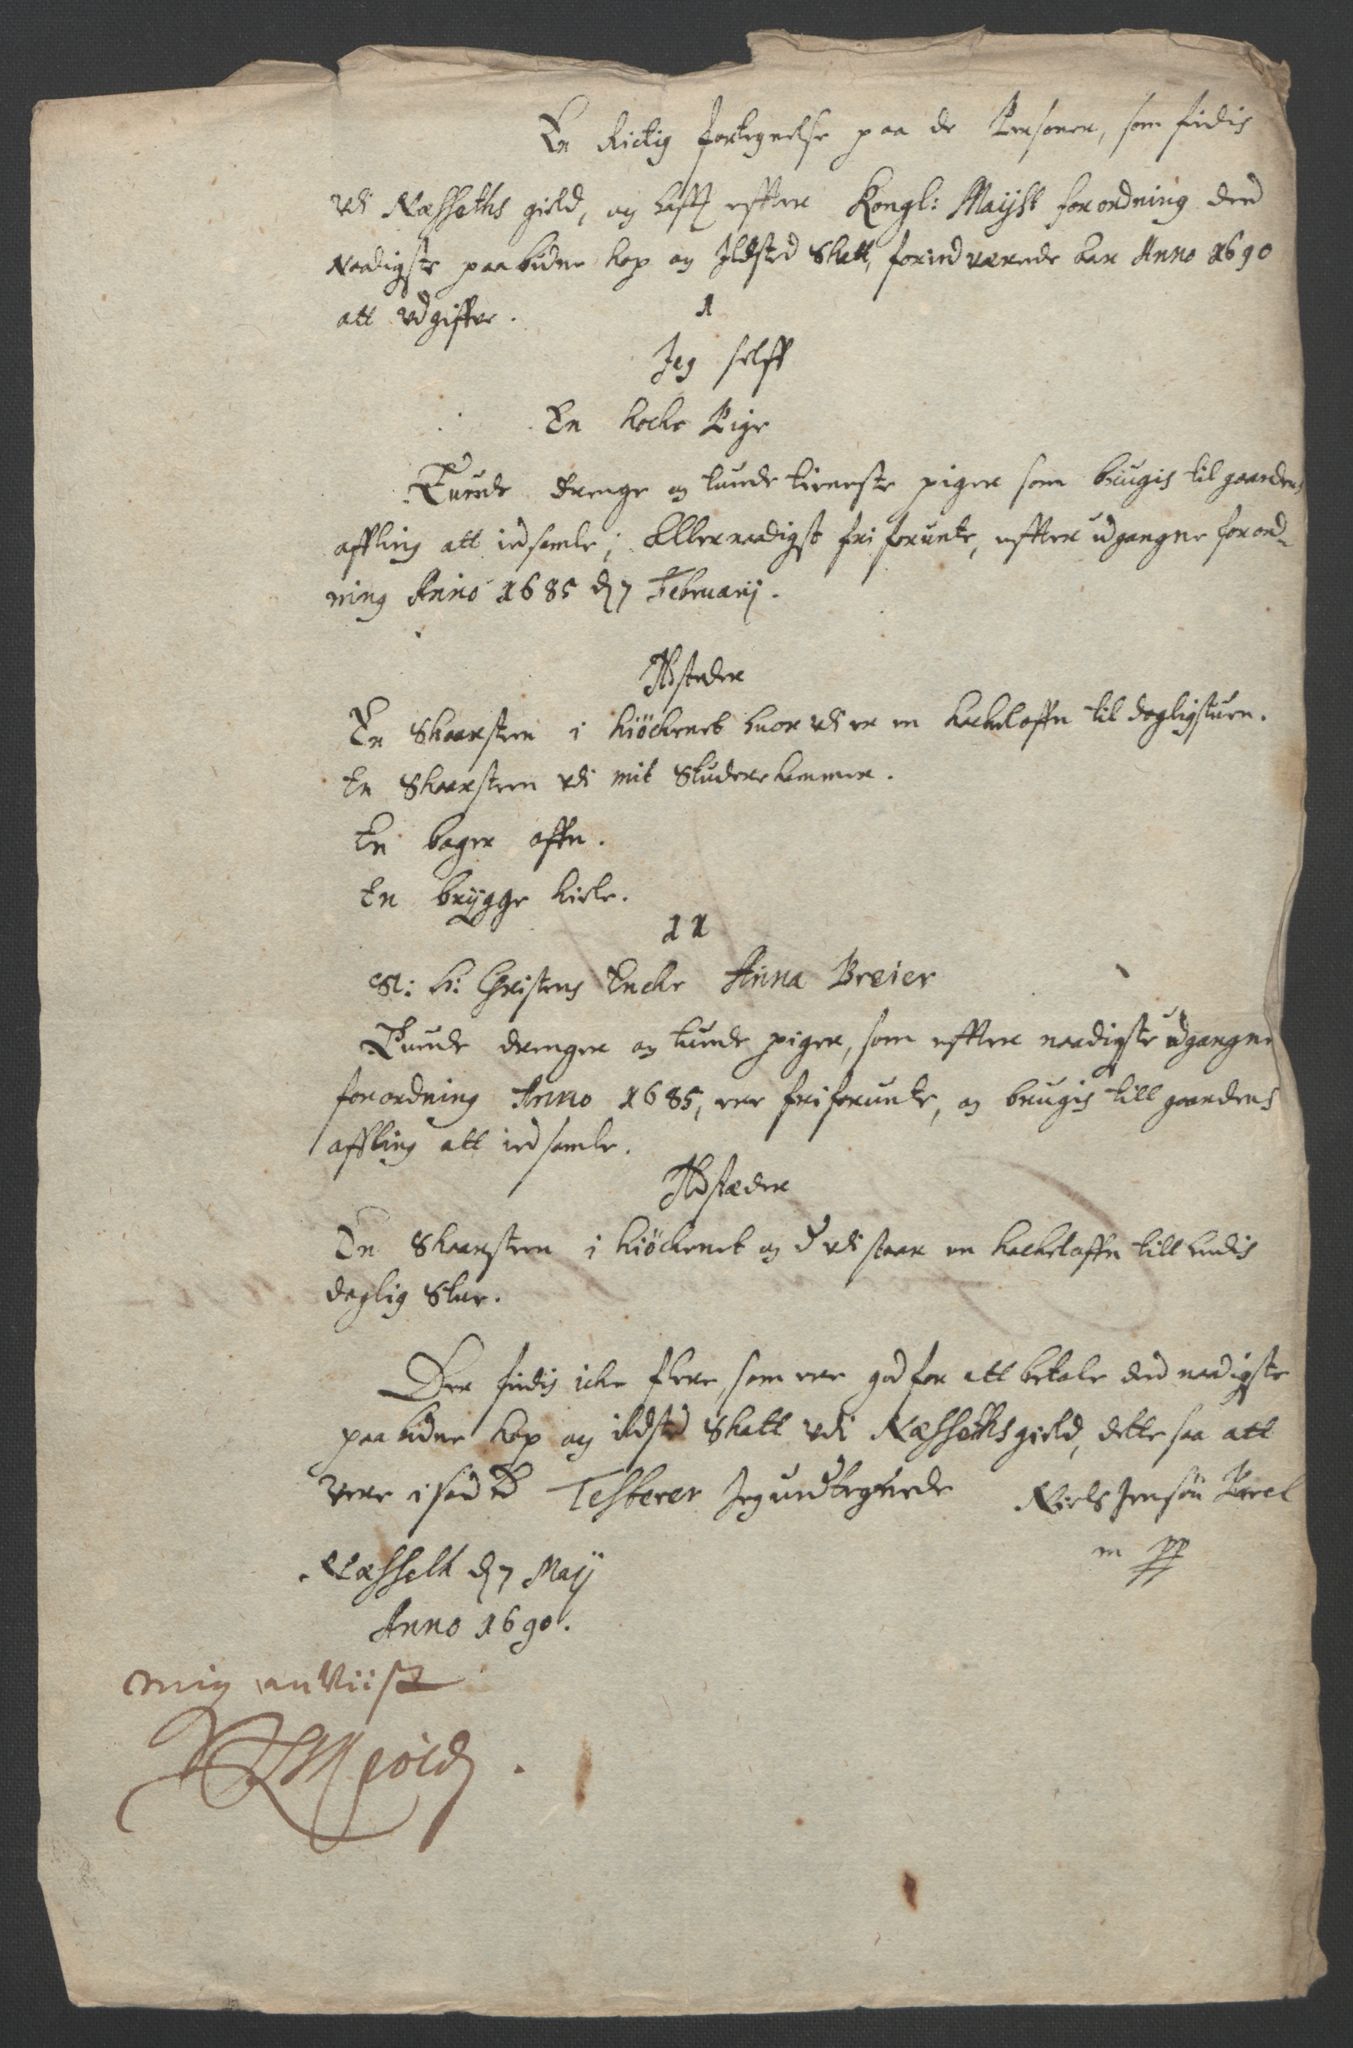 En Richtig fortegnelse paa de Personer, som findis
udi Næssetths gield, og haffr effter Kongl: Mayst forordning den
Naadigste paabudne kop og Ildsted Skatt, for indværende aar Anno 1690
att udgiffue.
1
Jeg selff
En kocke Pige
Tuende drenge og tuende tieneste piger som brugis til gaardens
affling att indsamle; Allernaadigst fri forunte, effter udgangne forord-
ning Anno 1685 d 7 Februarij.
Ildsteder
En Skaarsteen i kiöckenet huor udi er en kackeloffn til dagligstuen.
En Skaarsteen udi mit Studerekammer.
En bager offn.
En brygge kiele.
11
Sl: H: Christens Encke Anna Breier
Tuende drenger og tuende piger, som effter naadigste udgangne
forordning Anno 1685, ere friforunte, og brugis till gaardens
affling att indsamle.
Ildstæder
En Skaarsteen i kiöckenet og der udi staar en kackeloffn till hendis
daglig Stue.
Der findis icke flere, som ere god for att betale den naadigste
paabudne kop og ildsted Skatt udi Næssethsgield, dette saa att
vere i sandhed Testerer Jeg undtegnede Niels Jensøn
m pp
Næssett d 7 Maij
Anno 1690.
mig anviist